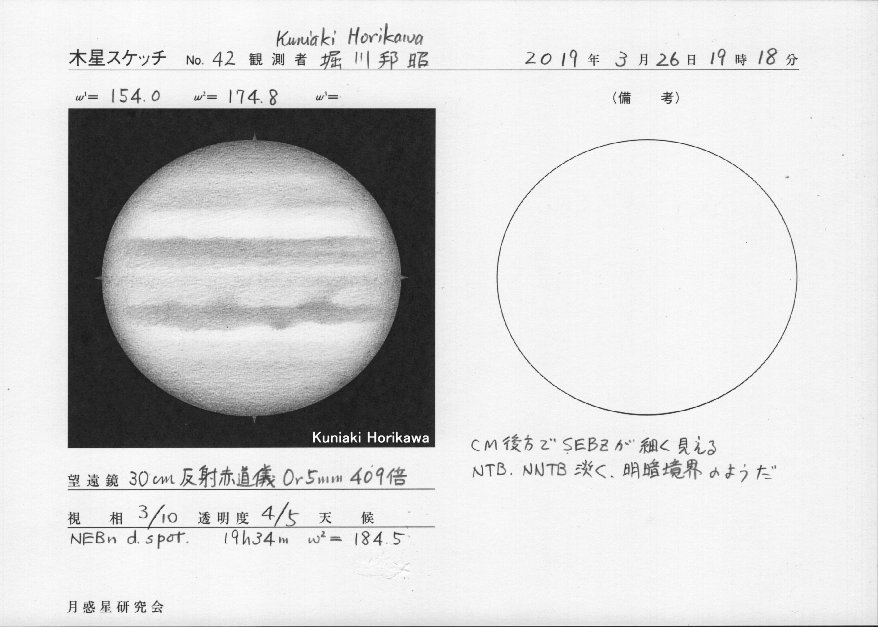 Kuniaki Horikawa
木星スケッチ No. 42 観測者 堀川邦昭 2019年 3月 26日 19時 18分
ω¹= 154.0 ω²= 174.8 ω³=
(備 考)
Kuniaki Horikawa
CM後方でSEBZが細く見える
NTB、NNTB淡く、明暗境界のようだ
望遠鏡 30cm反射赤道儀 Or5mm 409倍
視 相 3/10 透明度 4/5 天 候
NEBn d. spot. 19h34m ω²= 184.5
月惑星研究会